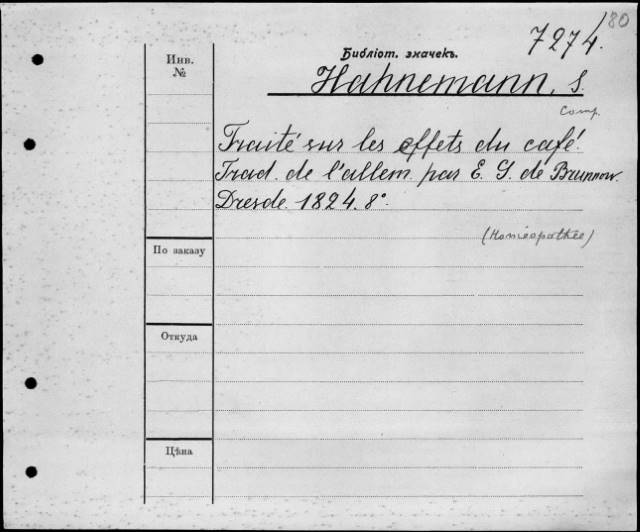 80
7274.
Инв.
№
Библіот. значекъ.
Hahnemann, S.
Comp.
Traité sur les effets du café.
Trad. de l'allem. par E. G. de Brunnow.
Dresde 1824. 8°.
(Homéopathie)
По заказу
Откуда
Цѣна